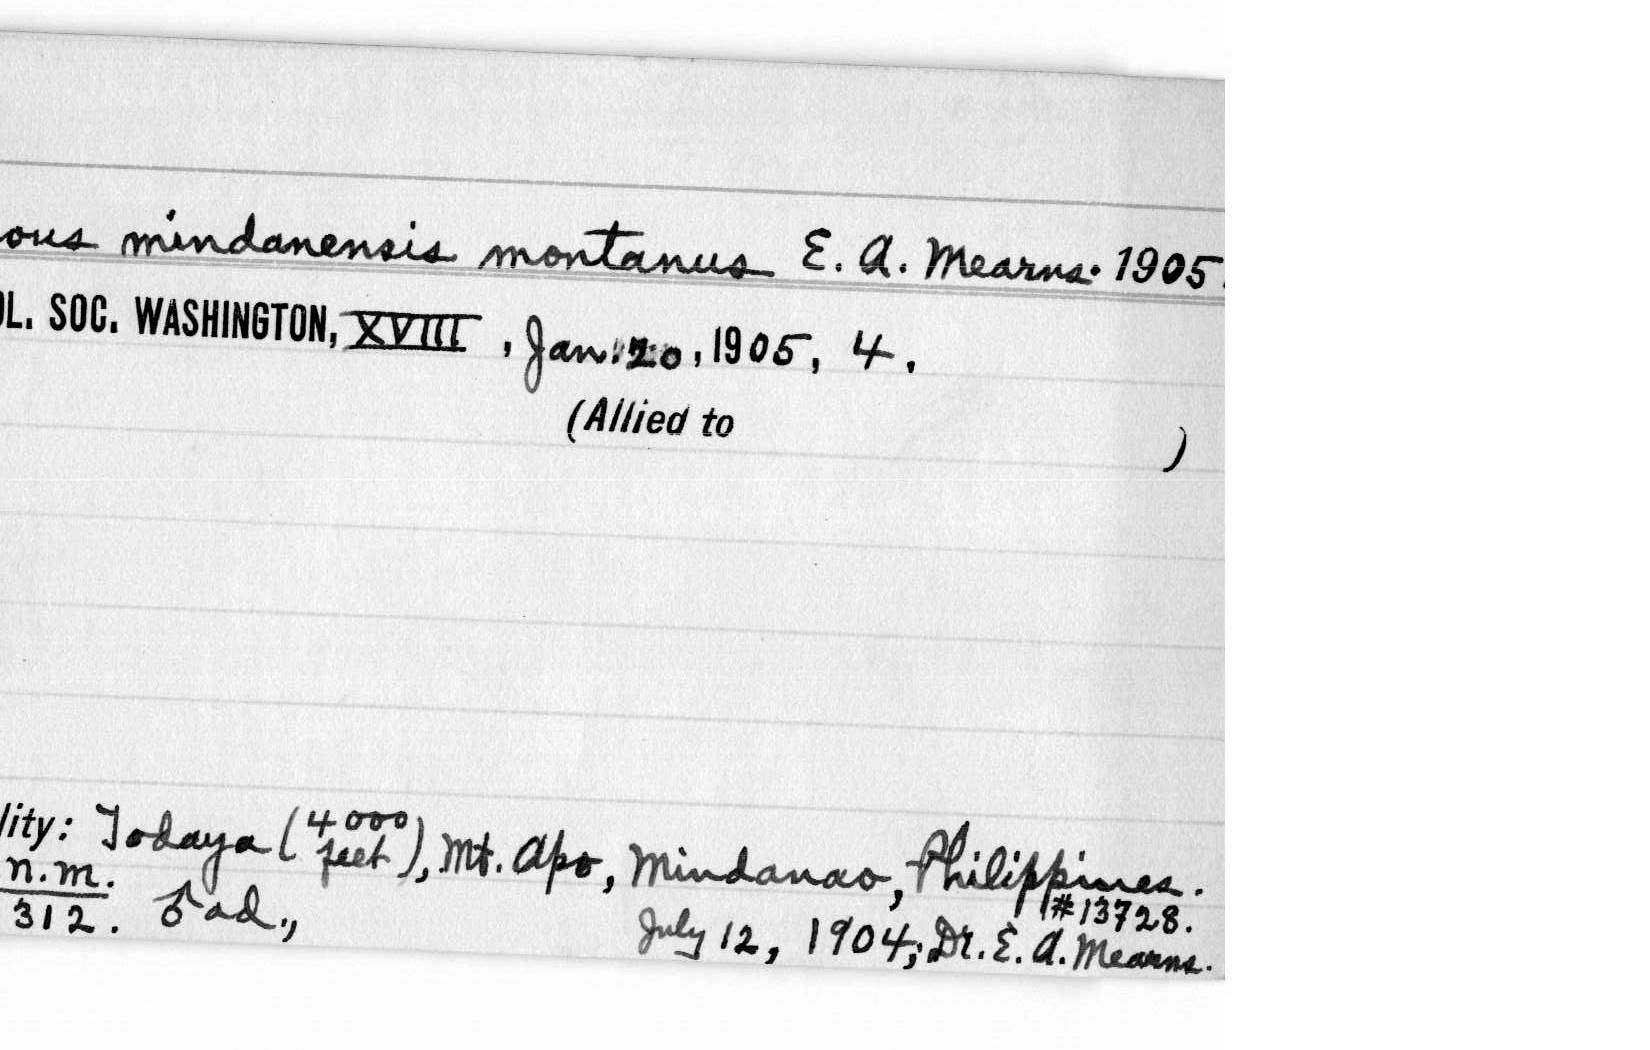 ous mindanensis montanus E. A. Mearns. 1905.
OL. SOC. WASHINGTON, XVIII, Jan. 20, 1905, 4.
(Allied to )
lity: Todaya (4000 feet), Mt. Apo, Mindanao, Philippines.
n.m. #13728.
312. ♂ ad., July 12, 1904; Dr. E. A. Mearns.